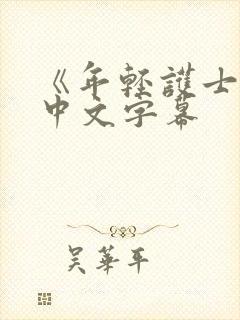 《年輕護士
中文字幕
吴華平